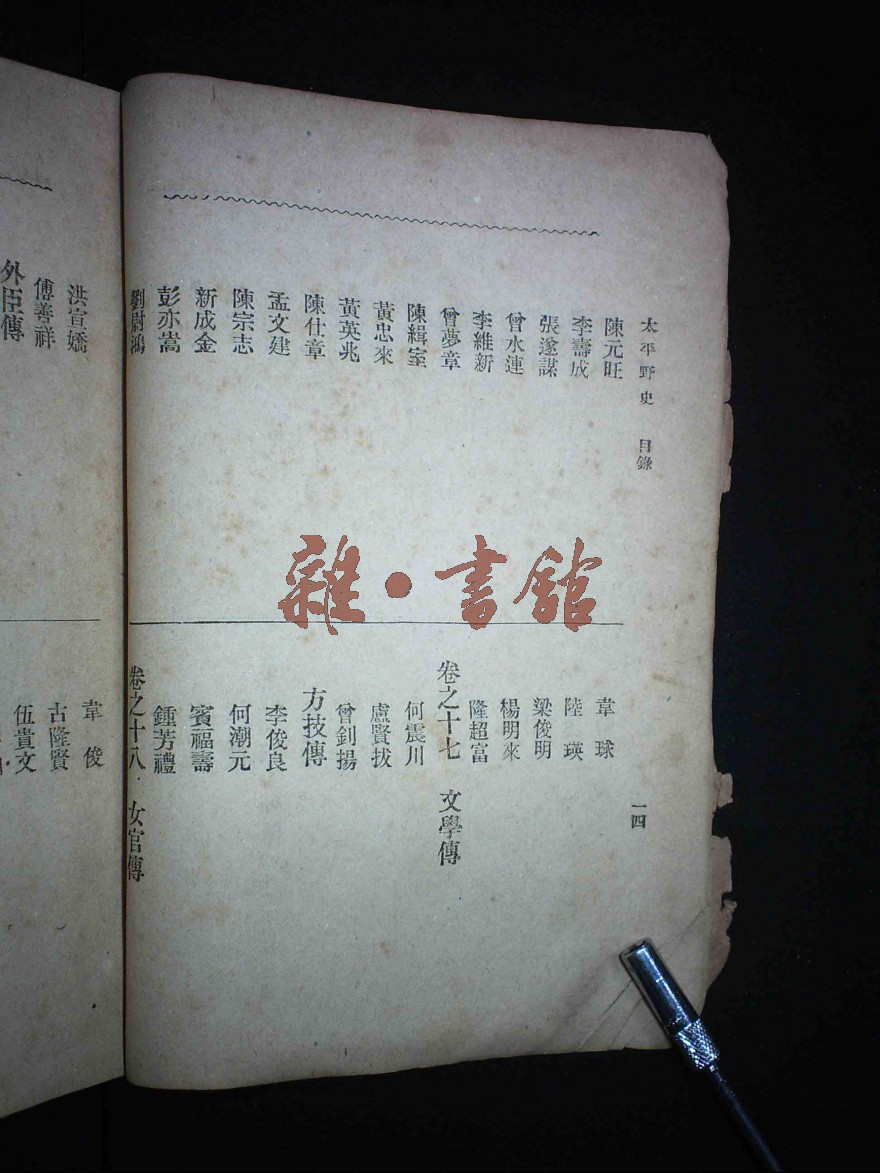 太平野史　目錄
一四
陳元旺
李壽成
張遂謀
曾水連
李維新
曾夢章
陳緝室
黃忠來
黃英兆
陳仕章
孟文建
陳宗志
新成金
彭亦嵩
劉尉鴻
韋　球
陸　瑛
梁俊明
楊明來
隆超富
卷之十七　文學傳
何震川
盧賢拔
曾釗揚
方技傳
李俊良
何潮元
賓福壽
鍾芳禮
卷之十八　女官傳
洪宣嬌
傅善祥
外臣傳
韋　俊
古隆賢
伍貴文
雜·書館